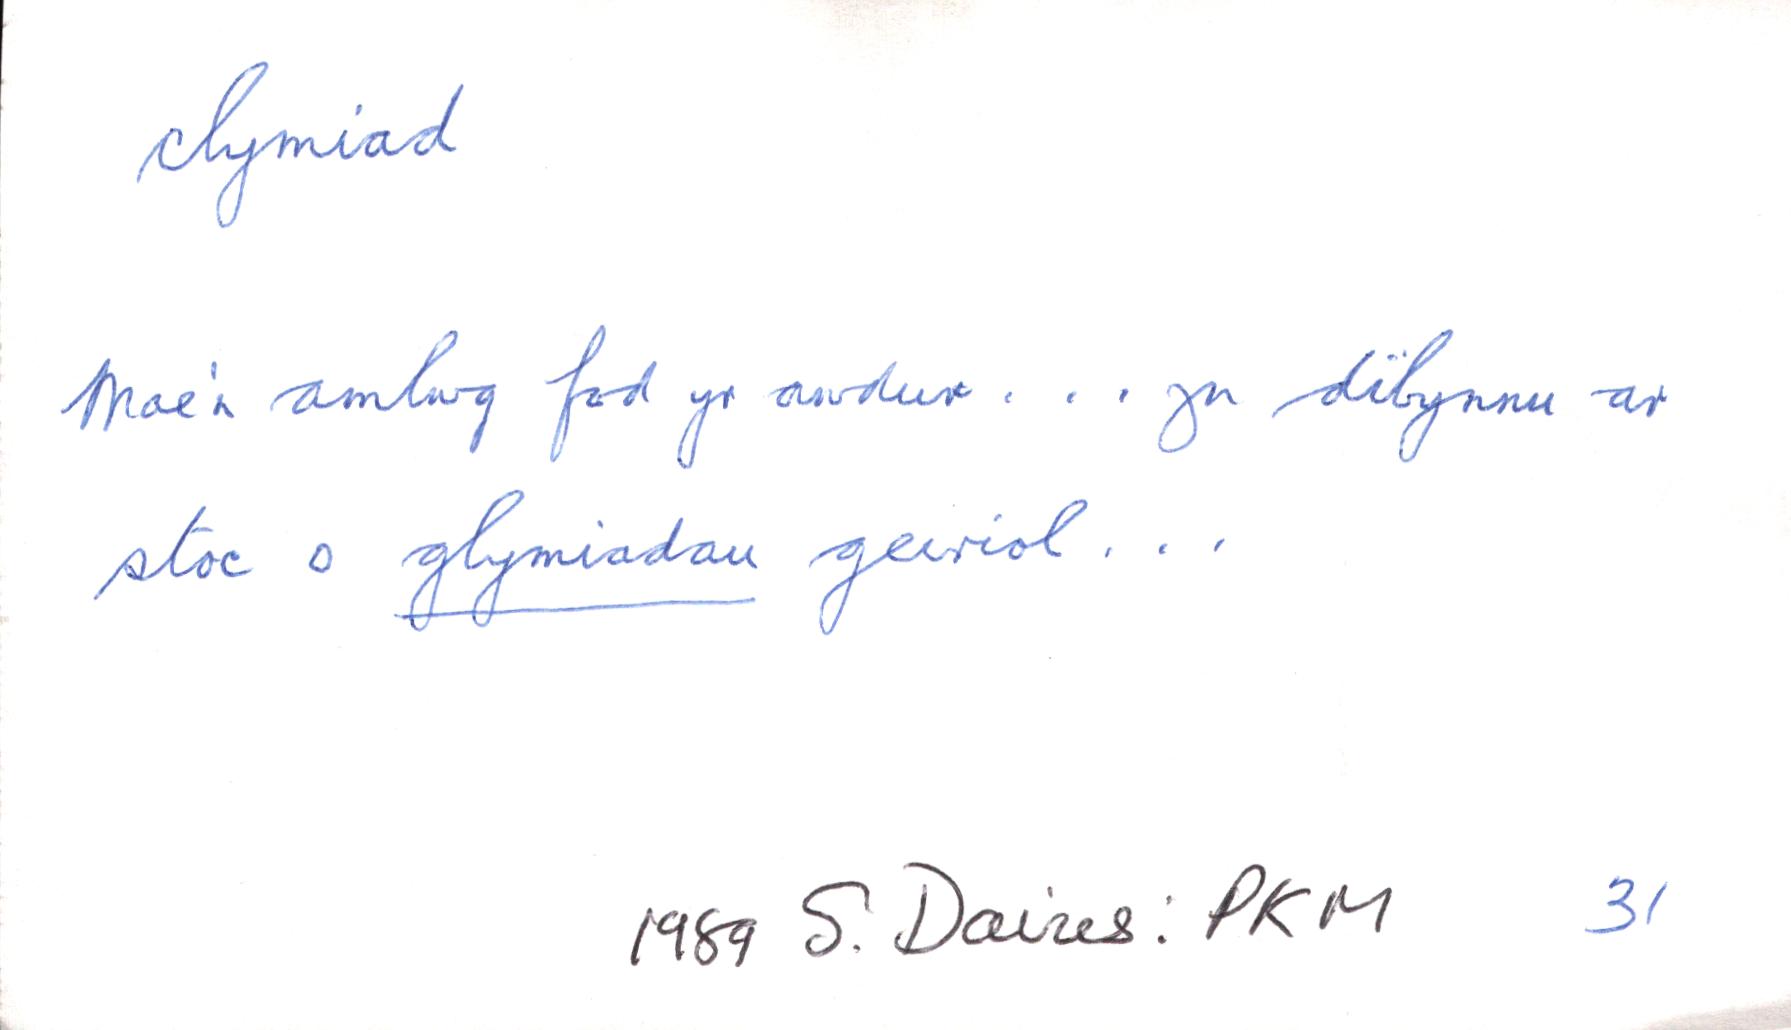 clymiad
Mae'n amlwg fod yr awdur . . . yn dibynnu ar
stoc o glymiadau geiriol . . .
1989 S. Davies: PKM 31